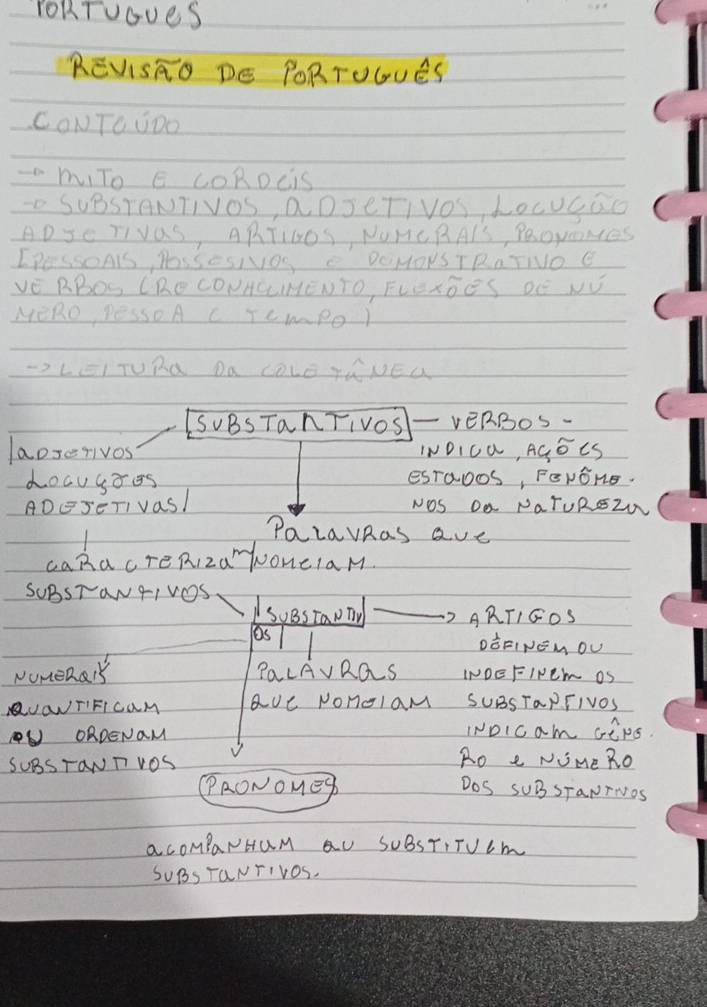 PORTUGUES
REVISÃO DE PORTUGUÊS
CONTEÚDO
→ MITO E CORDEIS
→ SUBSTANTIVOS, ADJETIVOS, LOCUÇÃO
ADJETIVAS, ARTIGOS, NUMERAIS, PRONOMES
[PESSOAIS, POSSESIVOS E DEMONSTRATIVO E
VERBOS (RECONHECIMENTO, FLEXÕES DE NÚ
MERO, PESSOA E TEMPO)
→ LEITURA DA COLETÂNEA
SUBSTANTIVOS — VERBOS -
|ADJETIVOS
INDICA, AÇÕES
LOCUÇÕES
ESTADOS, FENÔME.
ADEJETIVAS/
NOS DA NATUREZA
PALAVRAS QUE
CARACTERIZAM
NOMEIAM.
SUBSTANTIVOS
SUBSTANTIV → ARTIGOS
OS
DEFINEM OU
NUMERAIS
PALAVRAS
INDEFINEM OS
QUANTIFICAM
QUE NOMEIAM
SUBSTANTIVOS
OU ORDENAM
INDICAM GÊNE.
SUBSTANTIVOS
RO E NÚMERO
PRONOMES
DOS SUBSTANTIVOS
ACOMPANHAM OU SUBSTITUEM
SUBSTANTIVOS.